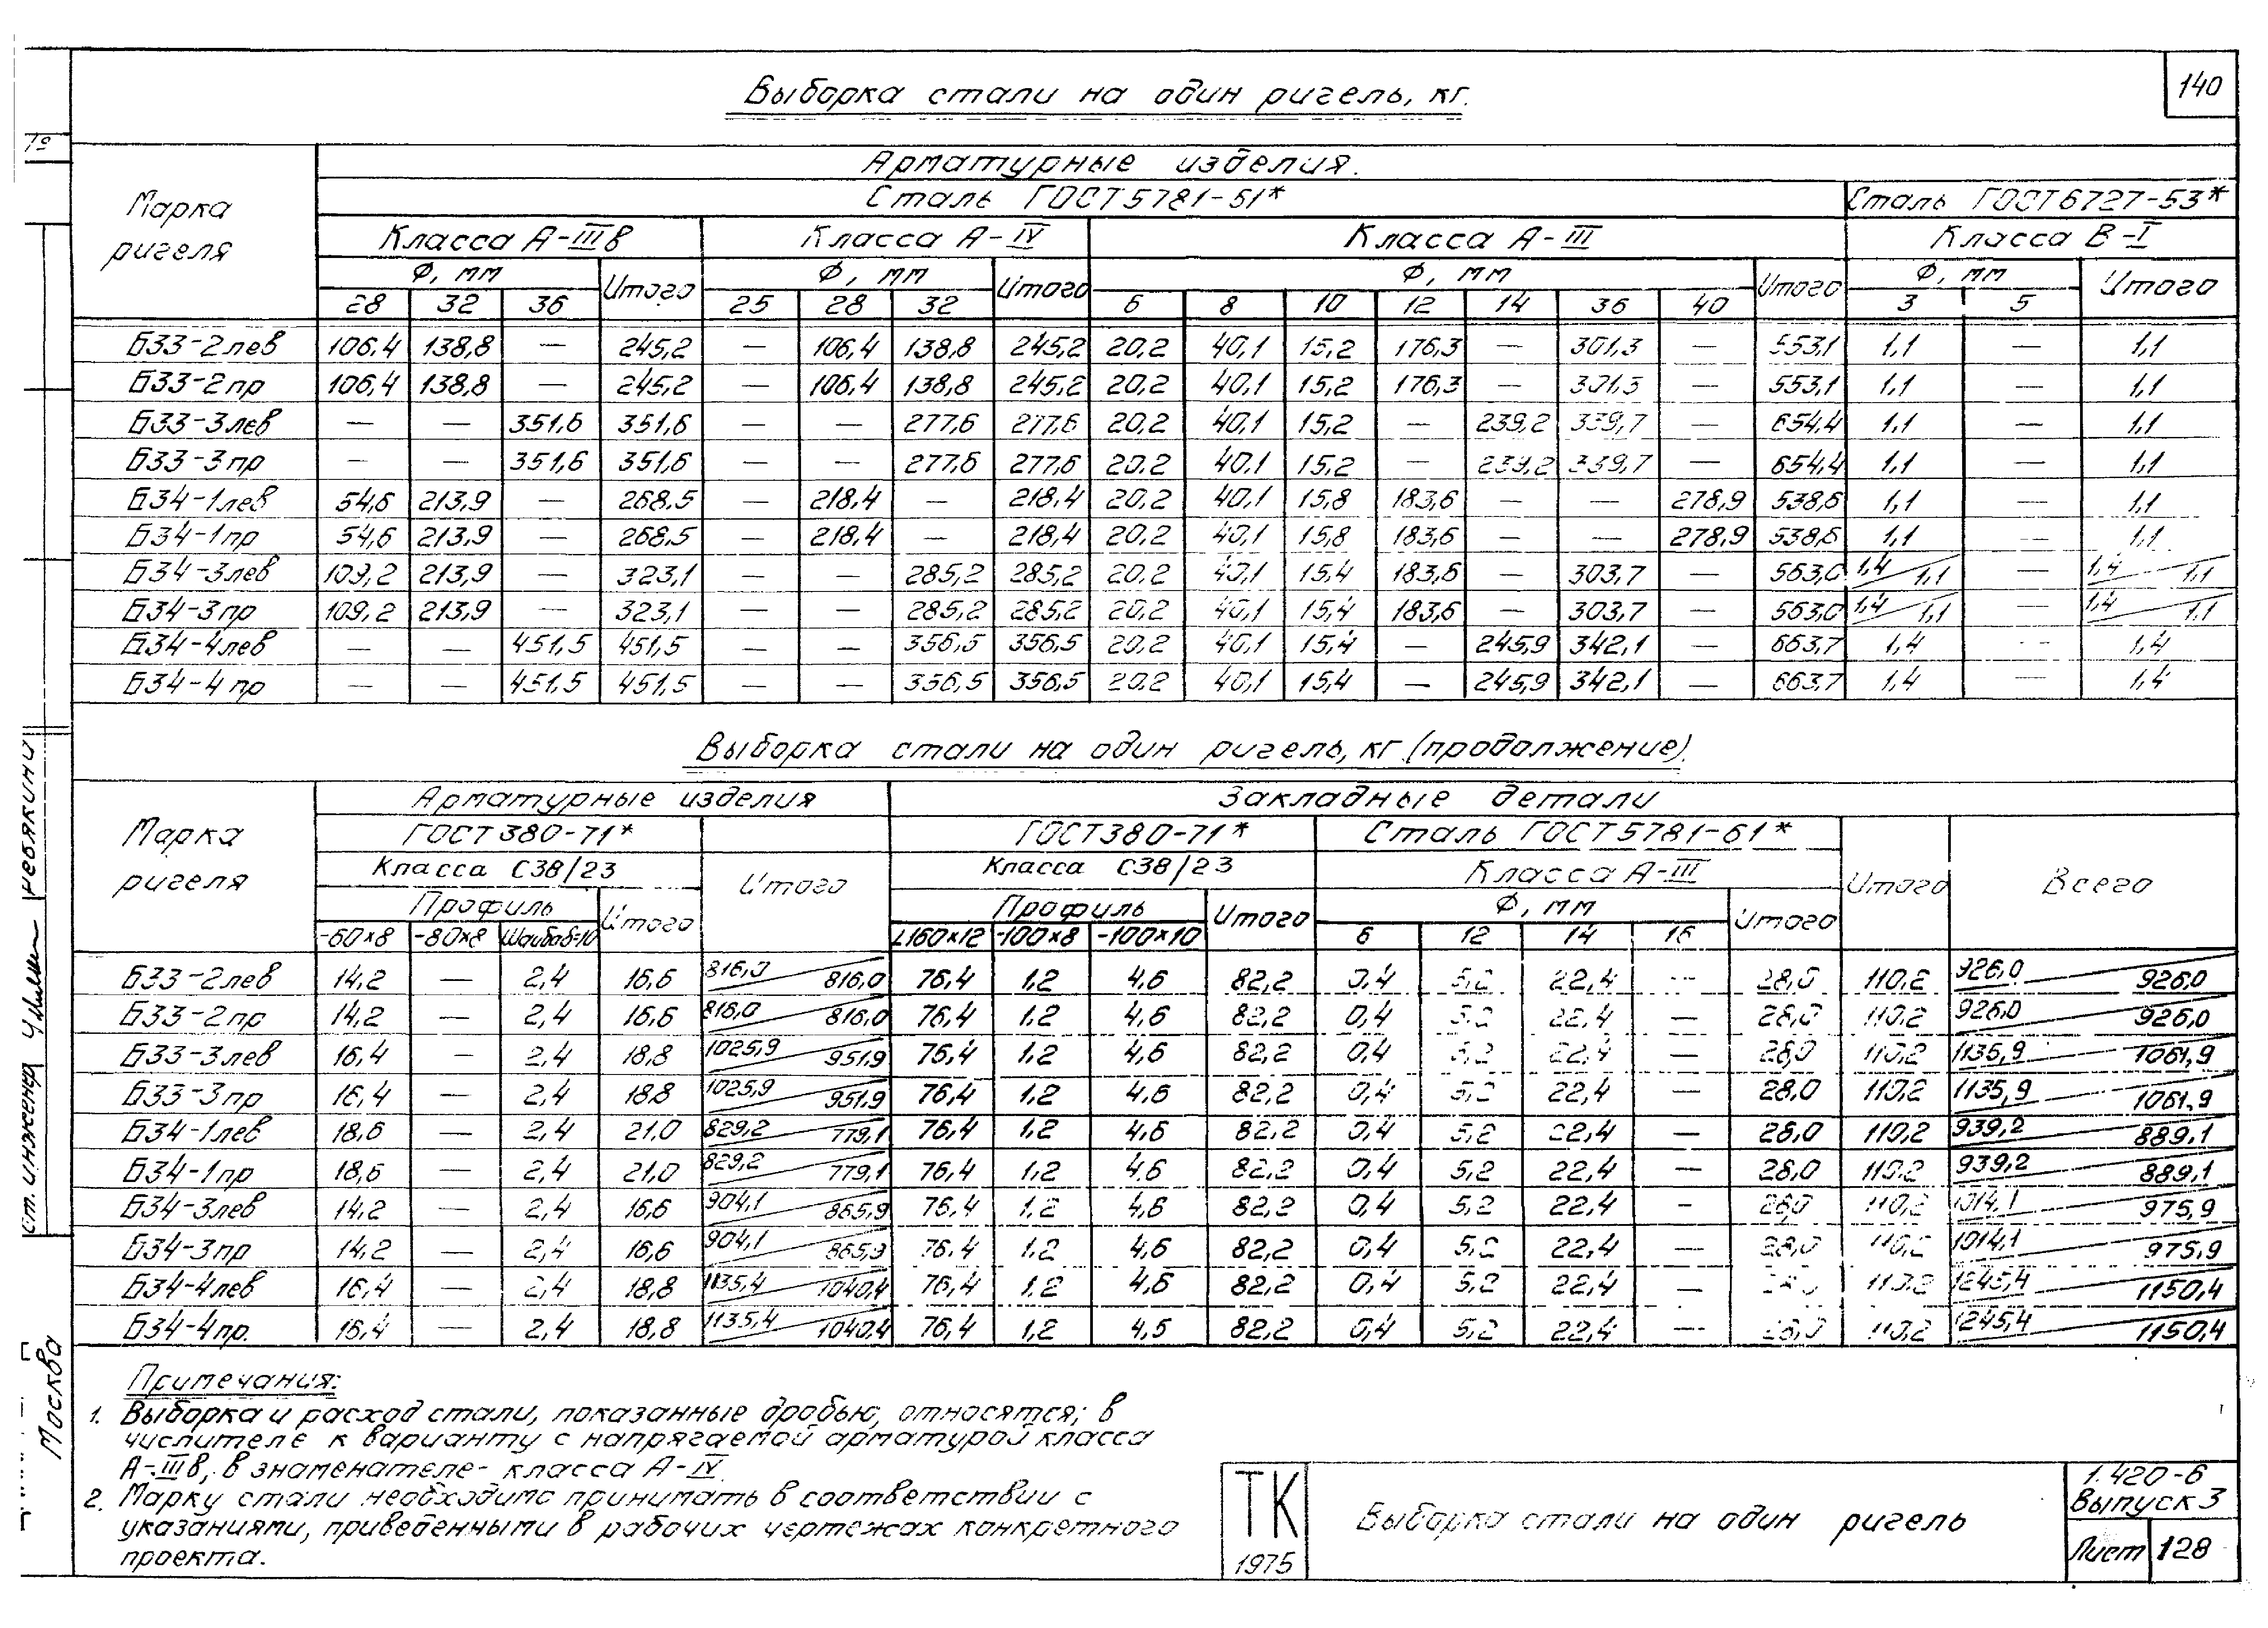 140
Выборка стали на один ригель, кг.
Марка ригеля
Арматурные изделия.
Сталь ГОСТ 5781-61*
Сталь ГОСТ 6727-53*
Класса А-IIIв
Класса А-IV
Класса А-III
Класса В-I
Ф, мм Итого Ф, мм Итого Ф, мм Итого Ф, мм Итого
28 32 36 25 28 32 6 8 10 12 14 36 40 3 5
Б33-2лев 106,4 138,8 — 245,2 — 106,4 138,8 245,2 20,2 40,1 15,2 176,3 — 301,3 — 553,1 1,1 — 1,1
Б33-2пр 106,4 138,8 — 245,2 — 106,4 138,8 245,2 20,2 40,1 15,2 176,3 — 301,3 — 553,1 1,1 — 1,1
Б33-3лев — — 351,6 351,6 — — 277,6 277,6 20,2 40,1 15,2 — 239,2 339,7 — 654,4 1,1 — 1,1
Б33-3пр — — 351,6 351,6 — — 277,6 277,6 20,2 40,1 15,2 — 239,2 339,7 — 654,4 1,1 — 1,1
Б34-1лев 54,6 213,9 — 268,5 — 218,4 — 218,4 20,2 40,1 15,8 183,6 — — 278,9 538,6 1,1 — 1,1
Б34-1пр 54,6 213,9 — 268,5 — 218,4 — 218,4 20,2 40,1 15,8 183,6 — — 278,9 538,6 1,1 — 1,1
Б34-3лев 109,2 213,9 — 323,1 — — 285,2 285,2 20,2 40,1 15,4 183,6 — 303,7 — 563,0 1,4/1,1 — 1,4/1,1
Б34-3пр 109,2 213,9 — 323,1 — — 285,2 285,2 20,2 40,1 15,4 183,6 — 303,7 — 563,0 1,4/1,1 — 1,4/1,1
Б34-4лев — — 451,5 451,5 — — 356,5 356,5 20,2 40,1 15,4 — 245,9 342,1 — 663,7 1,4 — 1,4
Б34-4пр — — 451,5 451,5 — — 356,5 356,5 20,2 40,1 15,4 — 245,9 342,1 — 663,7 1,4 — 1,4
Выборка стали на один ригель, кг (продолжение)
Марка ригеля
Арматурные изделия
Закладные детали
ГОСТ 380-71*
Итого
ГОСТ 380-71*
Сталь ГОСТ 5781-61*
Итого
Всего
Класса С38/23
Класса С38/23
Класса А-III
Профиль Итого Профиль Итого Ф, мм Итого
-60×8 -80×8 Шайба δ=10 L160×12 -100×8 -100×10 6 12 14 16
Б33-2лев 14,2 — 2,4 16,6 816,0/816,0 76,4 1,2 4,6 82,2 0,4 5,2 22,4 — 28,0 110,2 926,0/926,0
Б33-2пр 14,2 — 2,4 16,6 816,0/816,0 76,4 1,2 4,6 82,2 0,4 5,2 22,4 — 28,0 110,2 926,0/926,0
Б33-3лев 16,4 — 2,4 18,8 1025,9/951,9 76,4 1,2 4,6 82,2 0,4 5,2 22,4 — 28,0 110,2 1135,9/1061,9
Б33-3пр 16,4 — 2,4 18,8 1025,9/951,9 76,4 1,2 4,6 82,2 0,4 5,2 22,4 — 28,0 110,2 1135,9/1061,9
Б34-1лев 18,6 — 2,4 21,0 829,2/779,1 76,4 1,2 4,6 82,2 0,4 5,2 22,4 — 28,0 110,2 939,2/889,1
Б34-1пр 18,6 — 2,4 21,0 829,2/779,1 76,4 1,2 4,6 82,2 0,4 5,2 22,4 — 28,0 110,2 939,2/889,1
Б34-3лев 14,2 — 2,4 16,6 904,1/865,9 76,4 1,2 4,6 82,2 0,4 5,2 22,4 — 28,0 110,2 1014,1/975,9
Б34-3пр 14,2 — 2,4 16,6 904,1/865,9 76,4 1,2 4,6 82,2 0,4 5,2 22,4 — 28,0 110,2 1014,1/975,9
Б34-4лев 16,4 — 2,4 18,8 1135,4/1040,4 76,4 1,2 4,6 82,2 0,4 5,2 22,4 — 110,2 1245,4/1150,4
Б34-4пр. 16,4 — 2,4 18,8 1135,4/1040,4 76,4 1,2 4,6 82,2 0,4 5,2 22,4 — 28,0 110,2 1245,4/1150,4
Примечания:
1. Выборка и расход стали, показанные дробью, относятся; в
числителе к варианту с напрягаемой арматурой класса
А-IIIв, в знаменателе- класса А-IV
2. Марку стали необходимо принимать в соответствии с
указаниями, приведенными в рабочих чертежах конкретного
проекта.
ТК
1975
Выборка стали на один ригель
1.420-6
Выпуск 3
Лист 128
ст. инженер
Москва